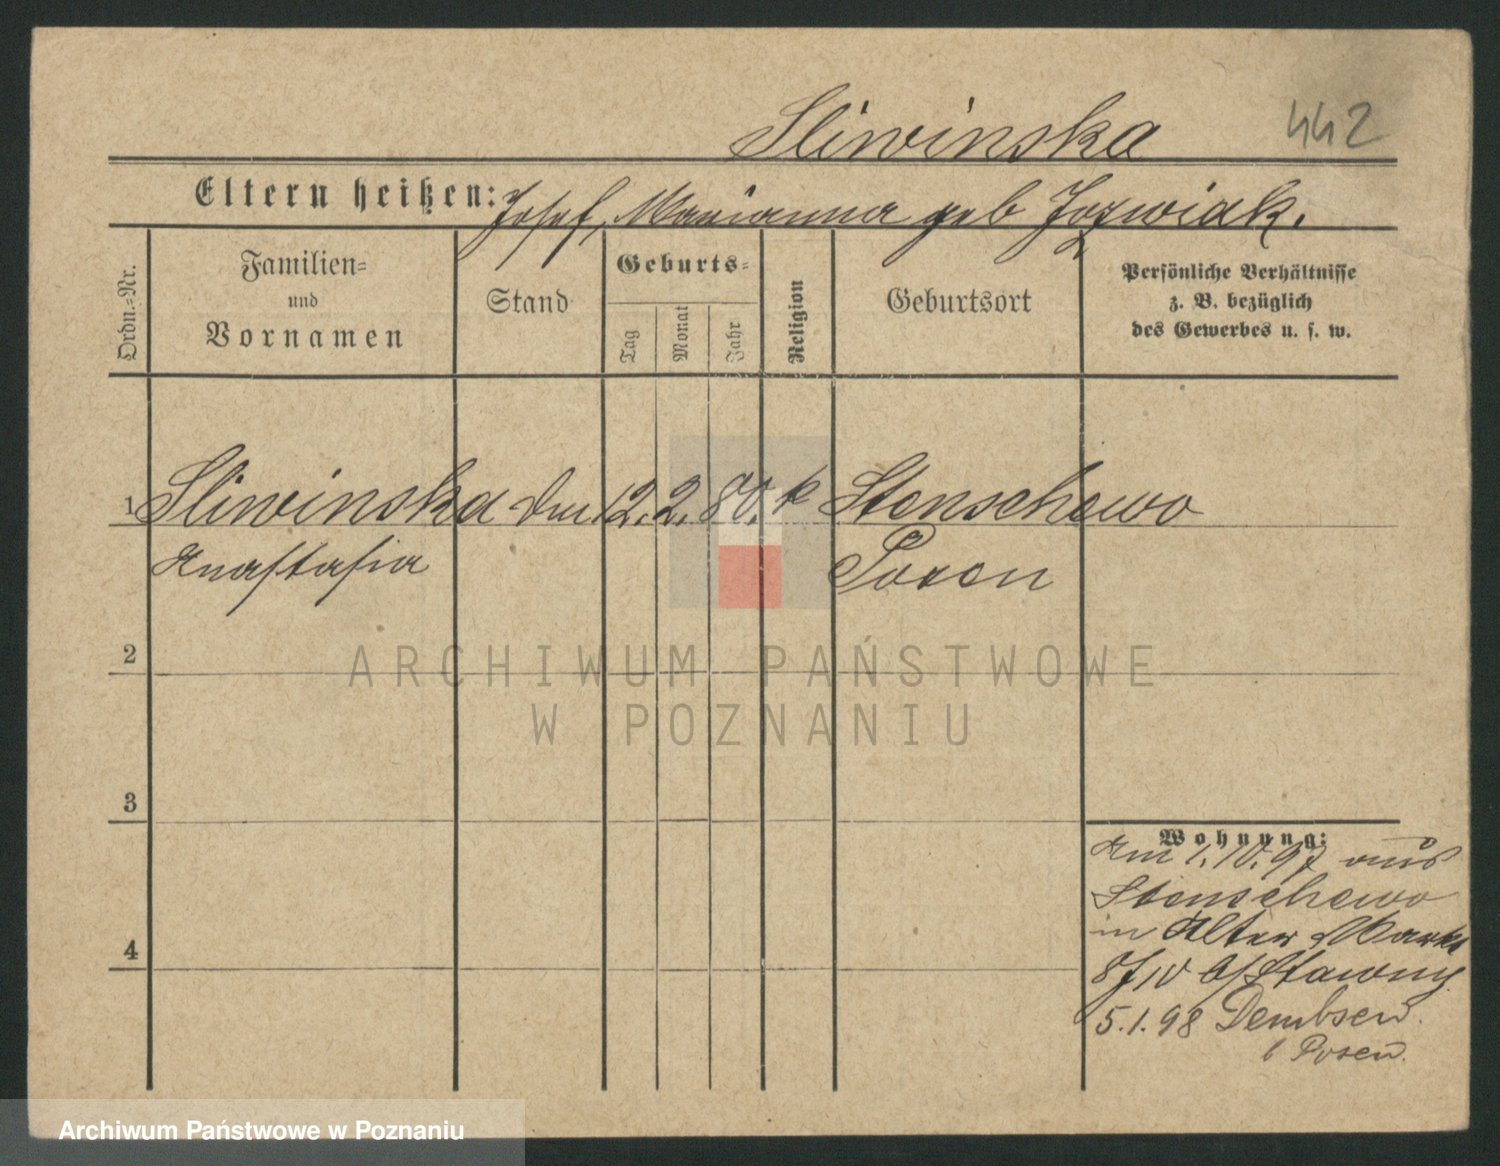 Sliwinska 442
Eltern heißen: Josef, Marianna geb Jozwiak.
Ordn.-Nr.
Familien-
und
Vornamen
Stand
Geburts-
Tag
Monat
Jahr
Religion
Geburtsort
Persönliche Verhältnisse
z. B. bezüglich
des Gewerbes u. s. w.
1 Sliwinska 12. 2. 80. k Stenschewo
Anastasia Posen
2
3
4
Wohnung:
Am 1.10.97 aus
Stenschewo
in Alter Markt
8/10 b/ Stawny
5.1.98 Dembsen.
b Posen.
ARCHIWUM PAŃSTWOWE
W POZNANIU
Archiwum Państwowe w Poznaniu